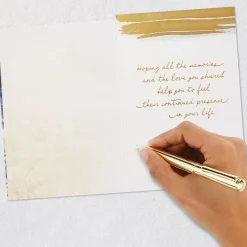 Hoping all the memories
and the love you shared
help you to feel
their continued presence
in your life